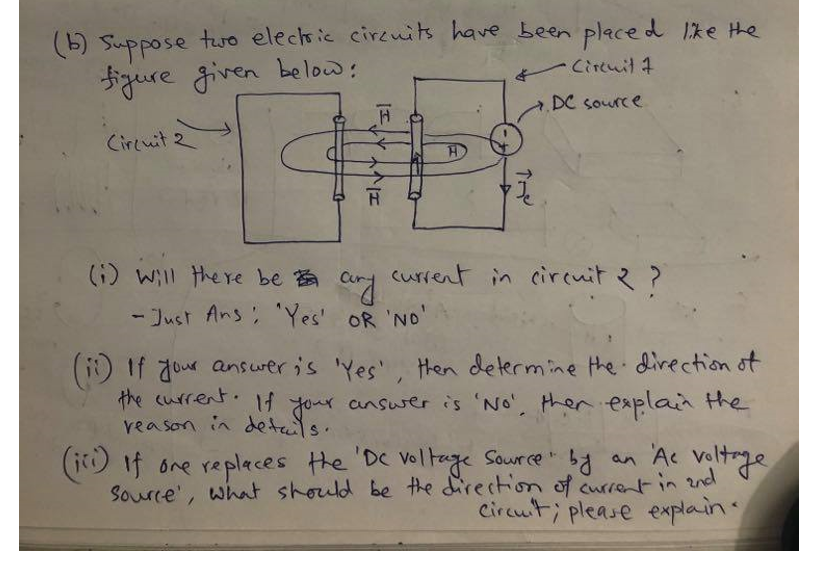 (b) Suppose two electric circuits have been placed like the
figure given below:
Circuit 1
DC source
H
Circuit 2
H
H
(i) Will there be any current in circuit 2 ?
- Just Ans: 'Yes' OR 'NO'
(ii) If your answer is 'Yes', then determine the direction of
the current. If your answer is 'No', then explain the
reason in details.
(iii) If one replaces the 'DC voltage source' by an 'Ac voltage
source', what should be the direction of current in 2nd
circuit; please explain.